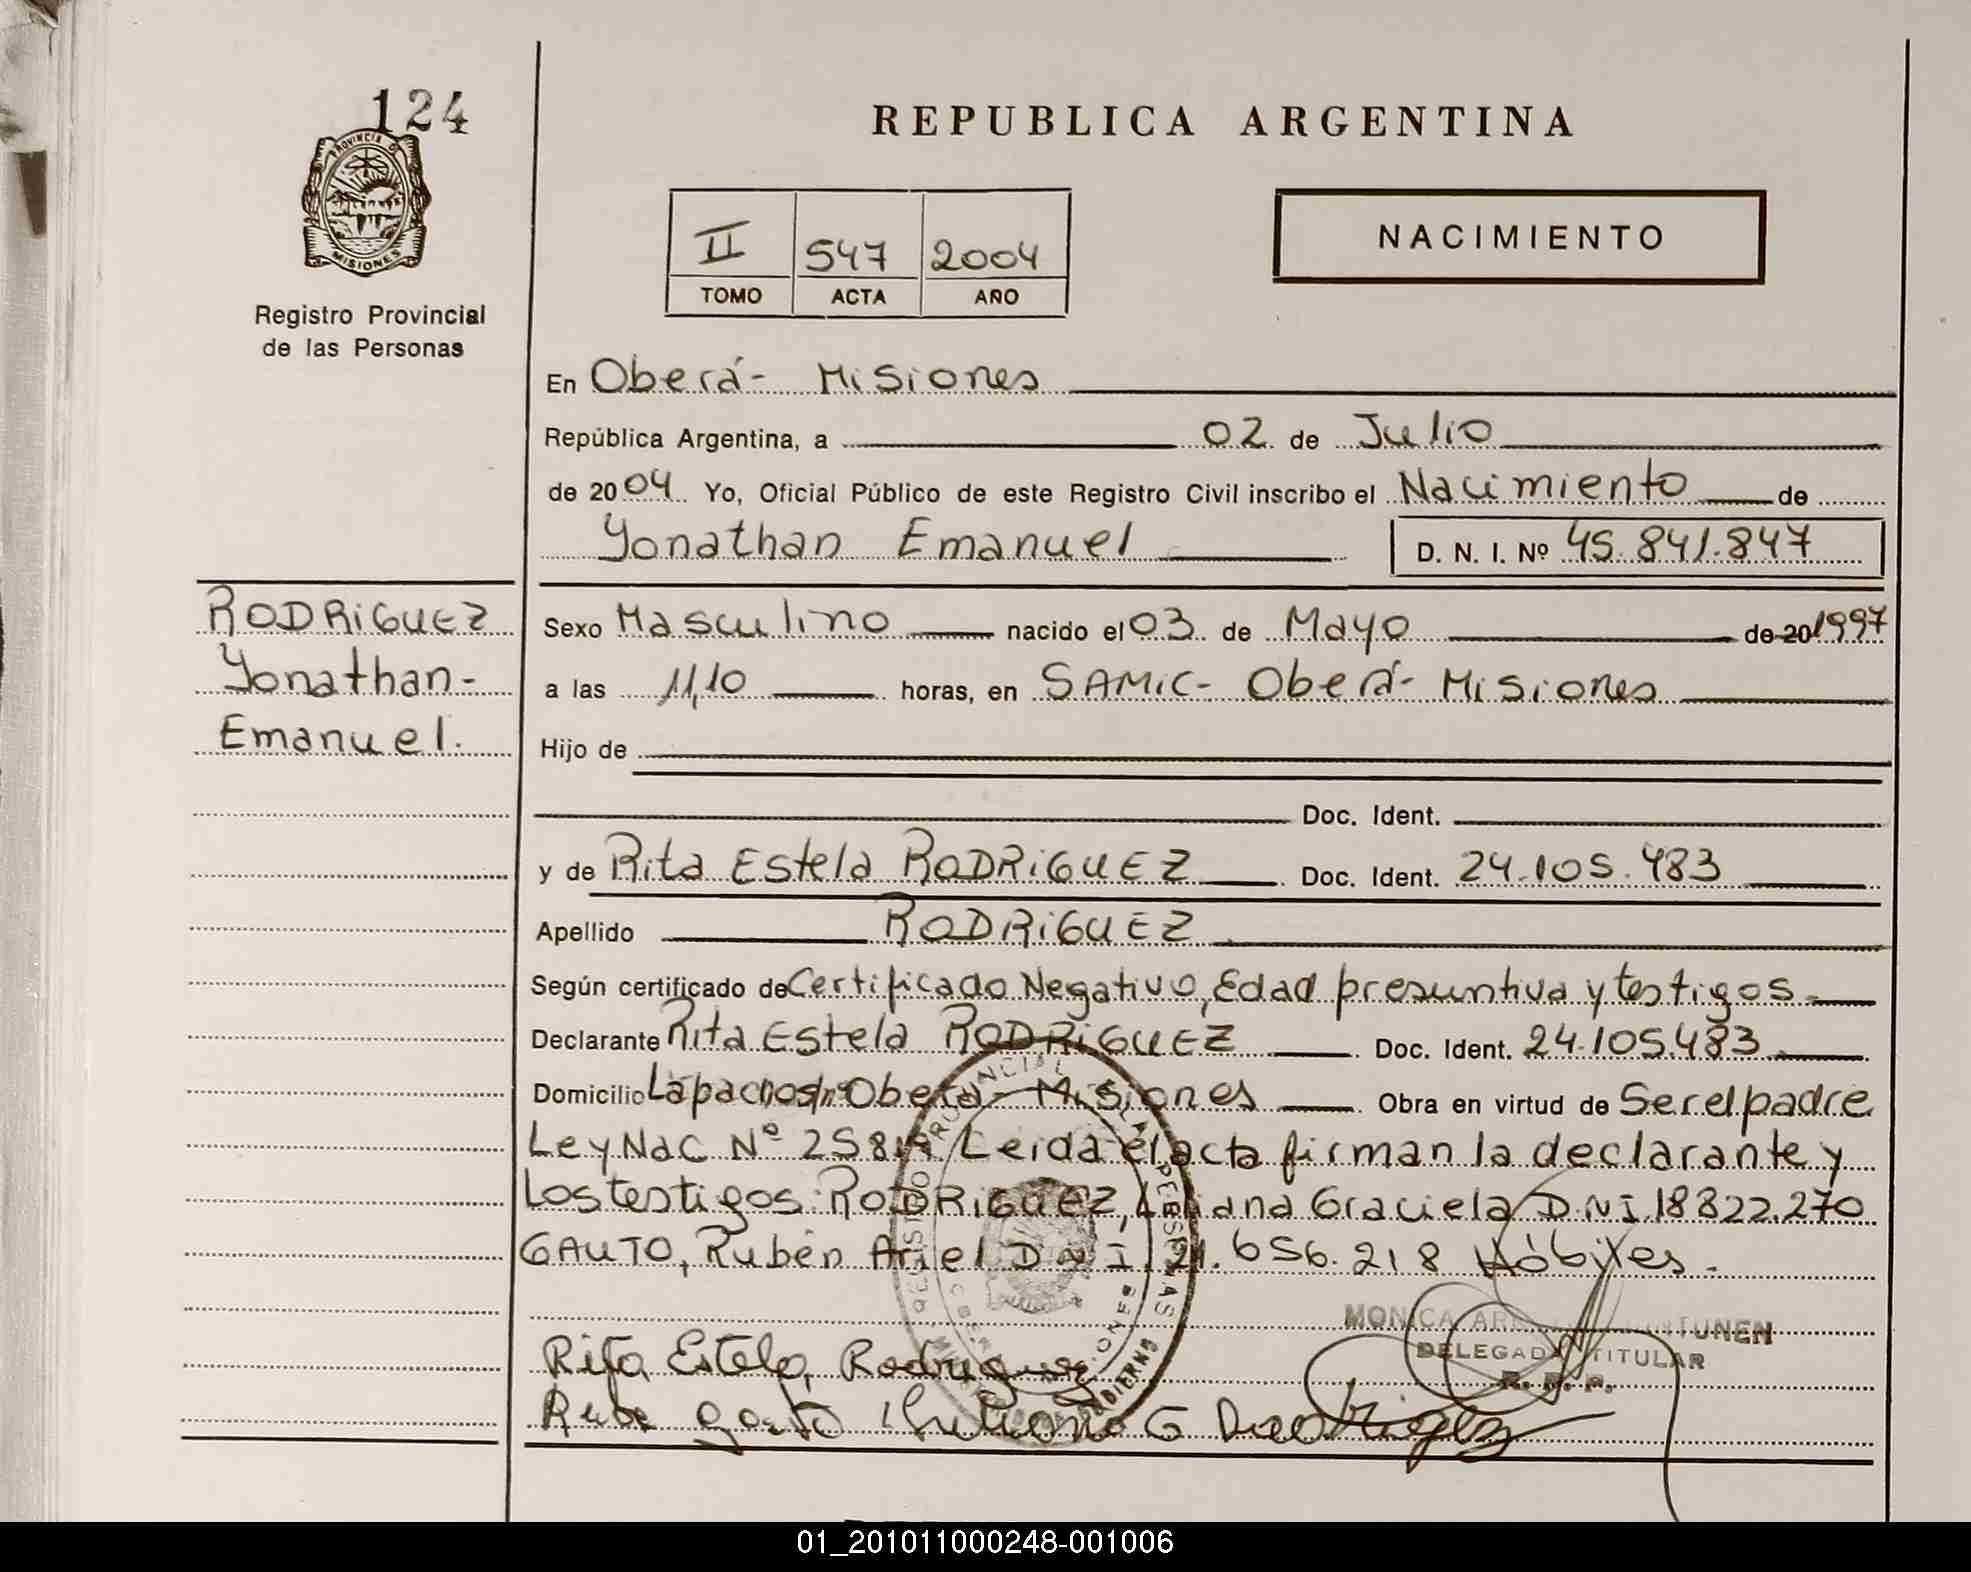 124
PROVINCIA DE
MISIONES
Registro Provincial
de las Personas
REPUBLICA ARGENTINA
II 547 2004
TOMO ACTA AÑO
NACIMIENTO
En Oberá- Misiones
República Argentina, a 02 de Julio
de 2004 Yo, Oficial Público de este Registro Civil inscribo el Nacimiento de
Yonathan Emanuel D. N. I. Nº 45.841.847
RODRIGUEZ
Yonathan-
Emanuel.
Sexo Masculino nacido el 03 de Mayo de 20 1997
a las 11,10 horas, en SAMIC- Oberá- Misiones
Hijo de
Doc. Ident.
y de Rita Estela RODRIGUEZ Doc. Ident. 24.105.483
Apellido RODRIGUEZ
Según certificado de Certificado Negativo, Edad presuntiva y testigos.
Declarante Rita Estela RODRIGUEZ Doc. Ident. 24.105.483
Domicilio Lapachos Oberá- Misiones Obra en virtud de Ser el padre
Ley Nac Nº Leida el acta firman la declarante y
Los testigos: RODRIGUEZ, Graciela D.N.I. 18822.270
GAUTO, Rubén Ariel D N I 21.656.218 Hábiles.
MONICA
DELEGADA TITULAR
Rita Estela Rodriguez
01_201011000248-001006